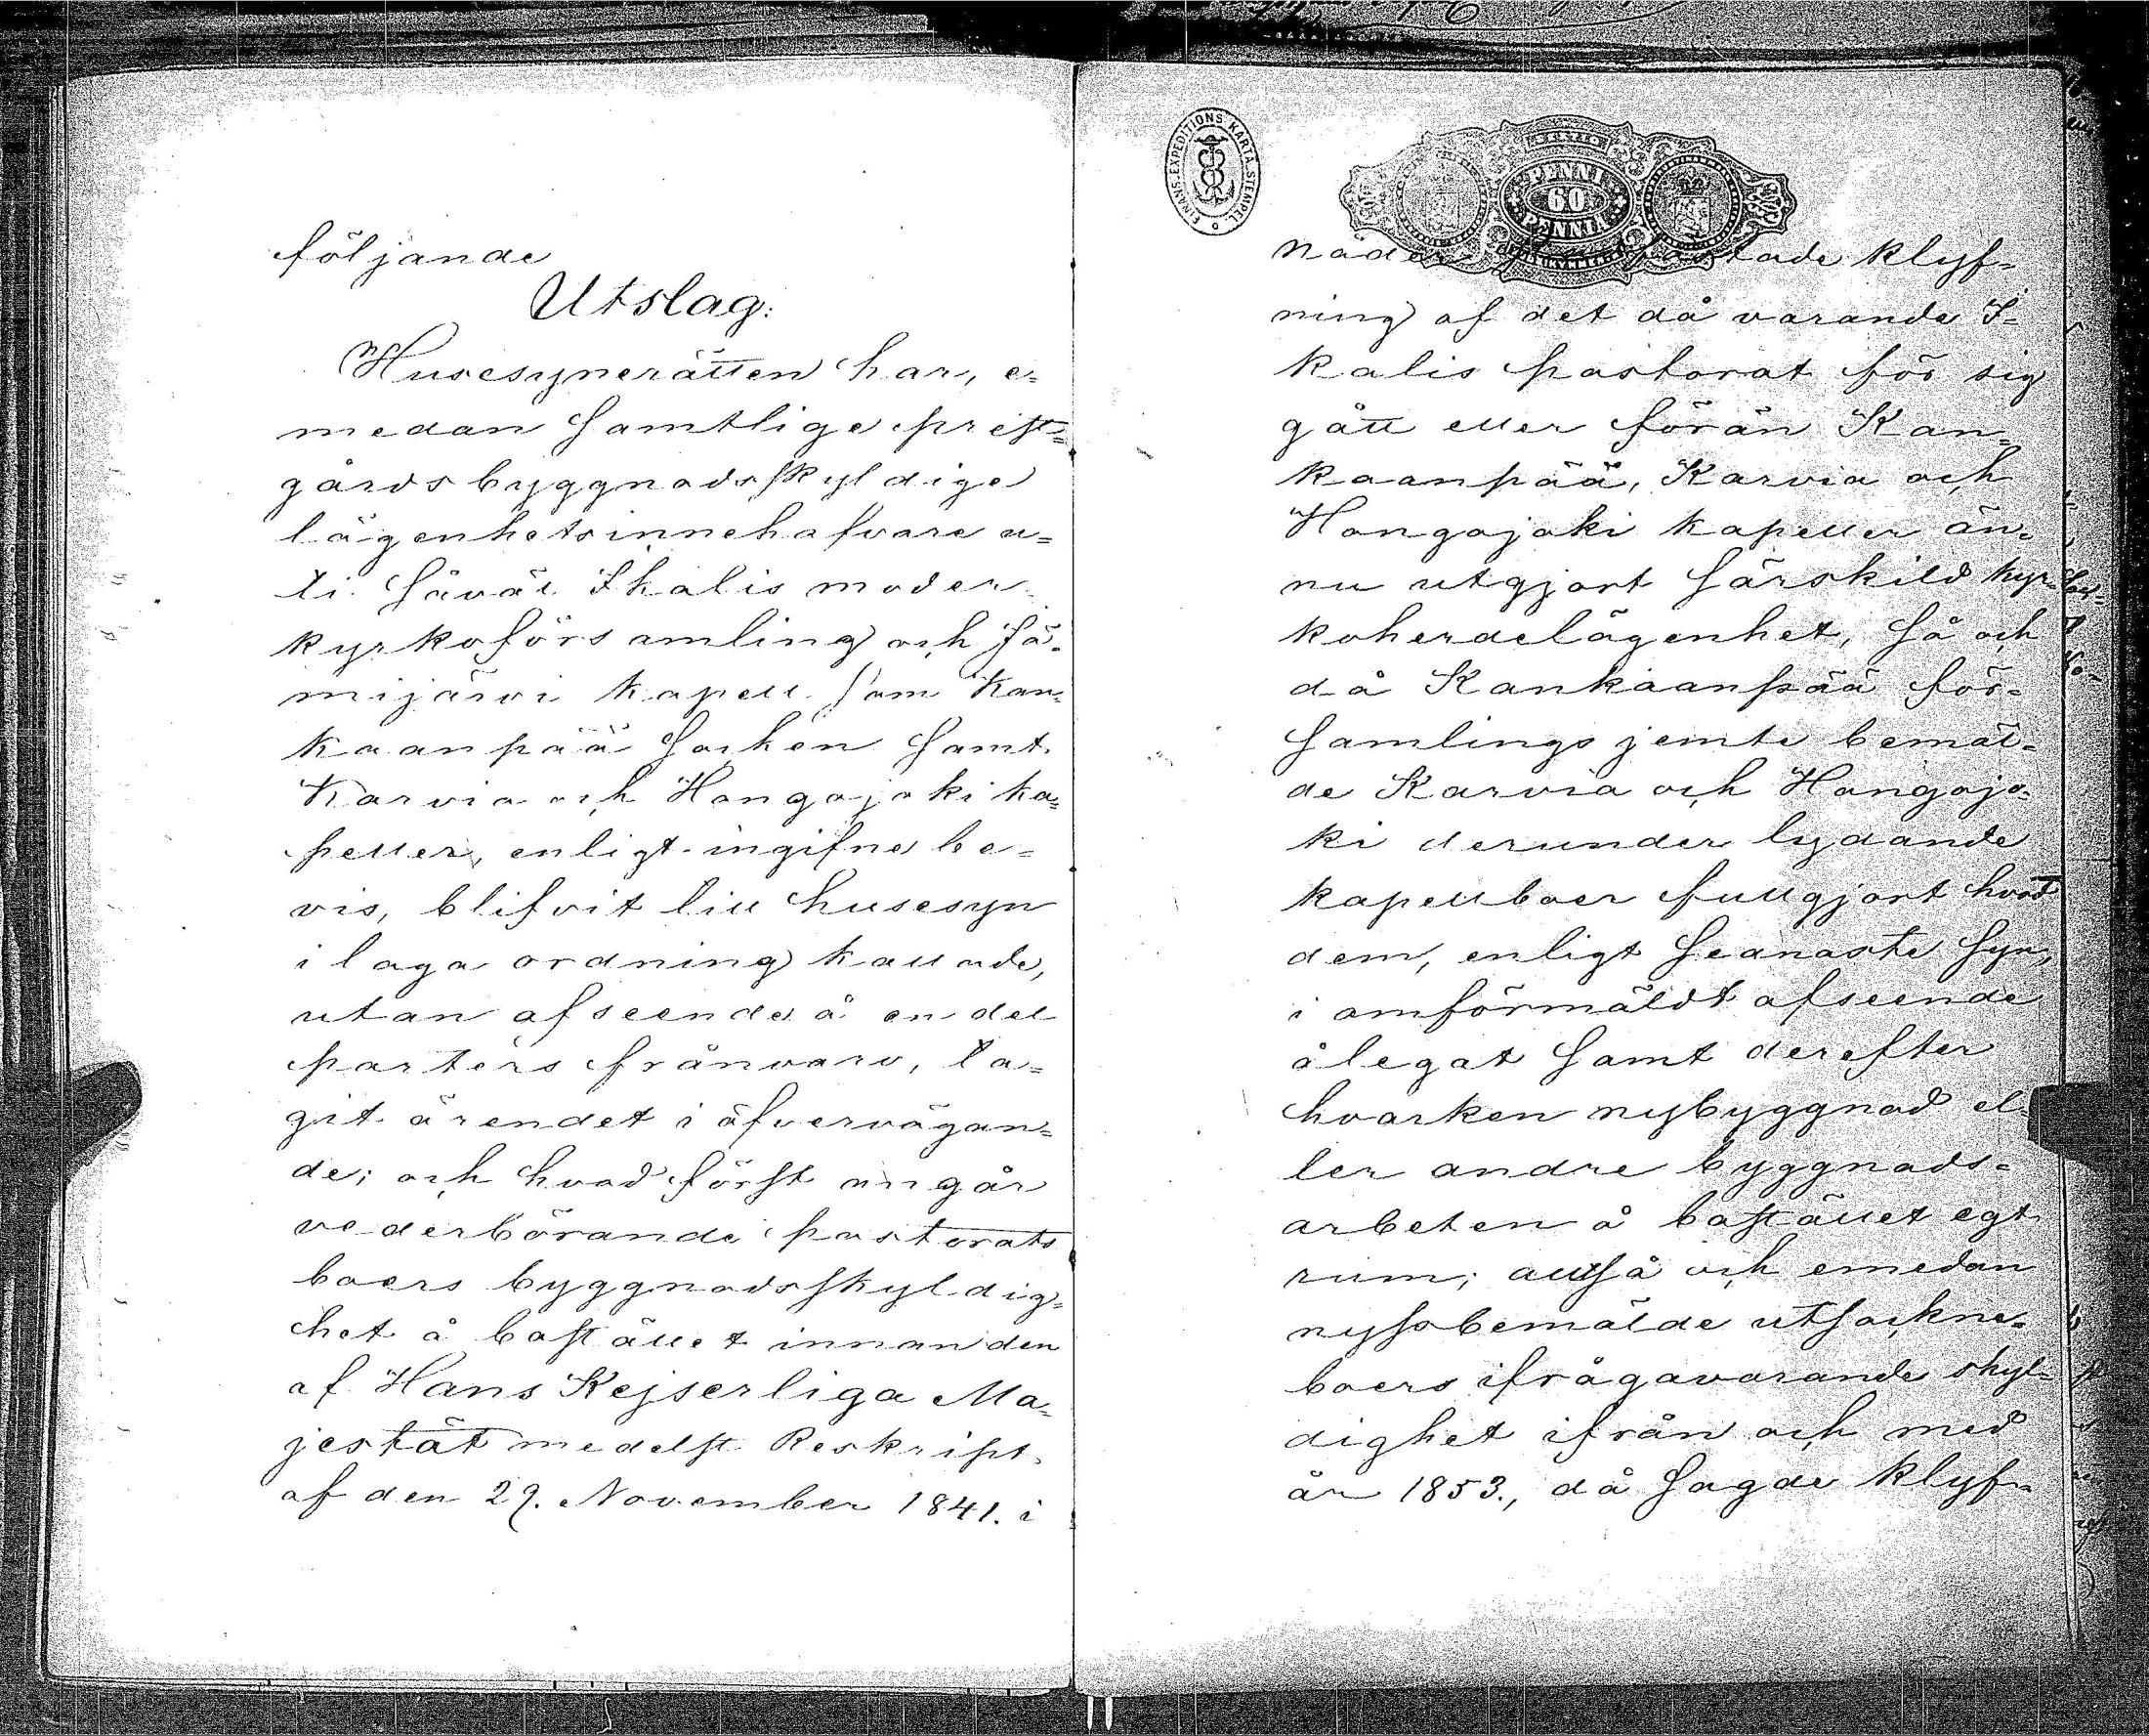 följande
Utslag:
Husesynerätten har, e=
medan samtlige prest=
gårdsbyggnadsskyldige
lägenhetsinnehafvare u=
ti såväl Ikalis moder
kyrkoförsamling och Jä=
mijärvi kapell som Kan=
kaanpää socken samt
Karvia och Hongojoki ka=
peller, enligt ingifne be=
vis, blifvit till husesyn
i laga ordning kallade,
utan afseende å en del
parters frånvaro, ta=
git ärendet i öfvervägan=
de; och hvad först angår
vederbörande pastorats
boers byggnadsskyldig=
het å bostället innan den
af Hans Kejserliga Ma=
jestät medelst Reskript
af den 29. November 1841. i
FINANS-EXPEDITIONS KARTÆ STEMPEL
PENNI
60
PENNIÄ
nåder klyf=
ning af det då varande I=
kalis pastorat för sig
gått eller förän Kan=
kaanpää, Karvia och
Hongojoki kapeller än=
nu utgjort särskild kyr=
koherdelägenhet, så och
då Kankaanpää för=
samlings jemte bemäl=
de Karvia och Hongojo=
ki derunder lydande
kapellboer fullgjort hvad
dem, enligt senaste syn,
i omförmäldt afseende
ålegat samt derefter
hvarken nybyggnad el=
ler andre byggnads=
arbeten å bostället egt
rum; alltså och emedan
nyssbemälde utsockne=
boers ifrågavarande skyl=
dighet ifrån och med
år 1853., då sagde klyf=